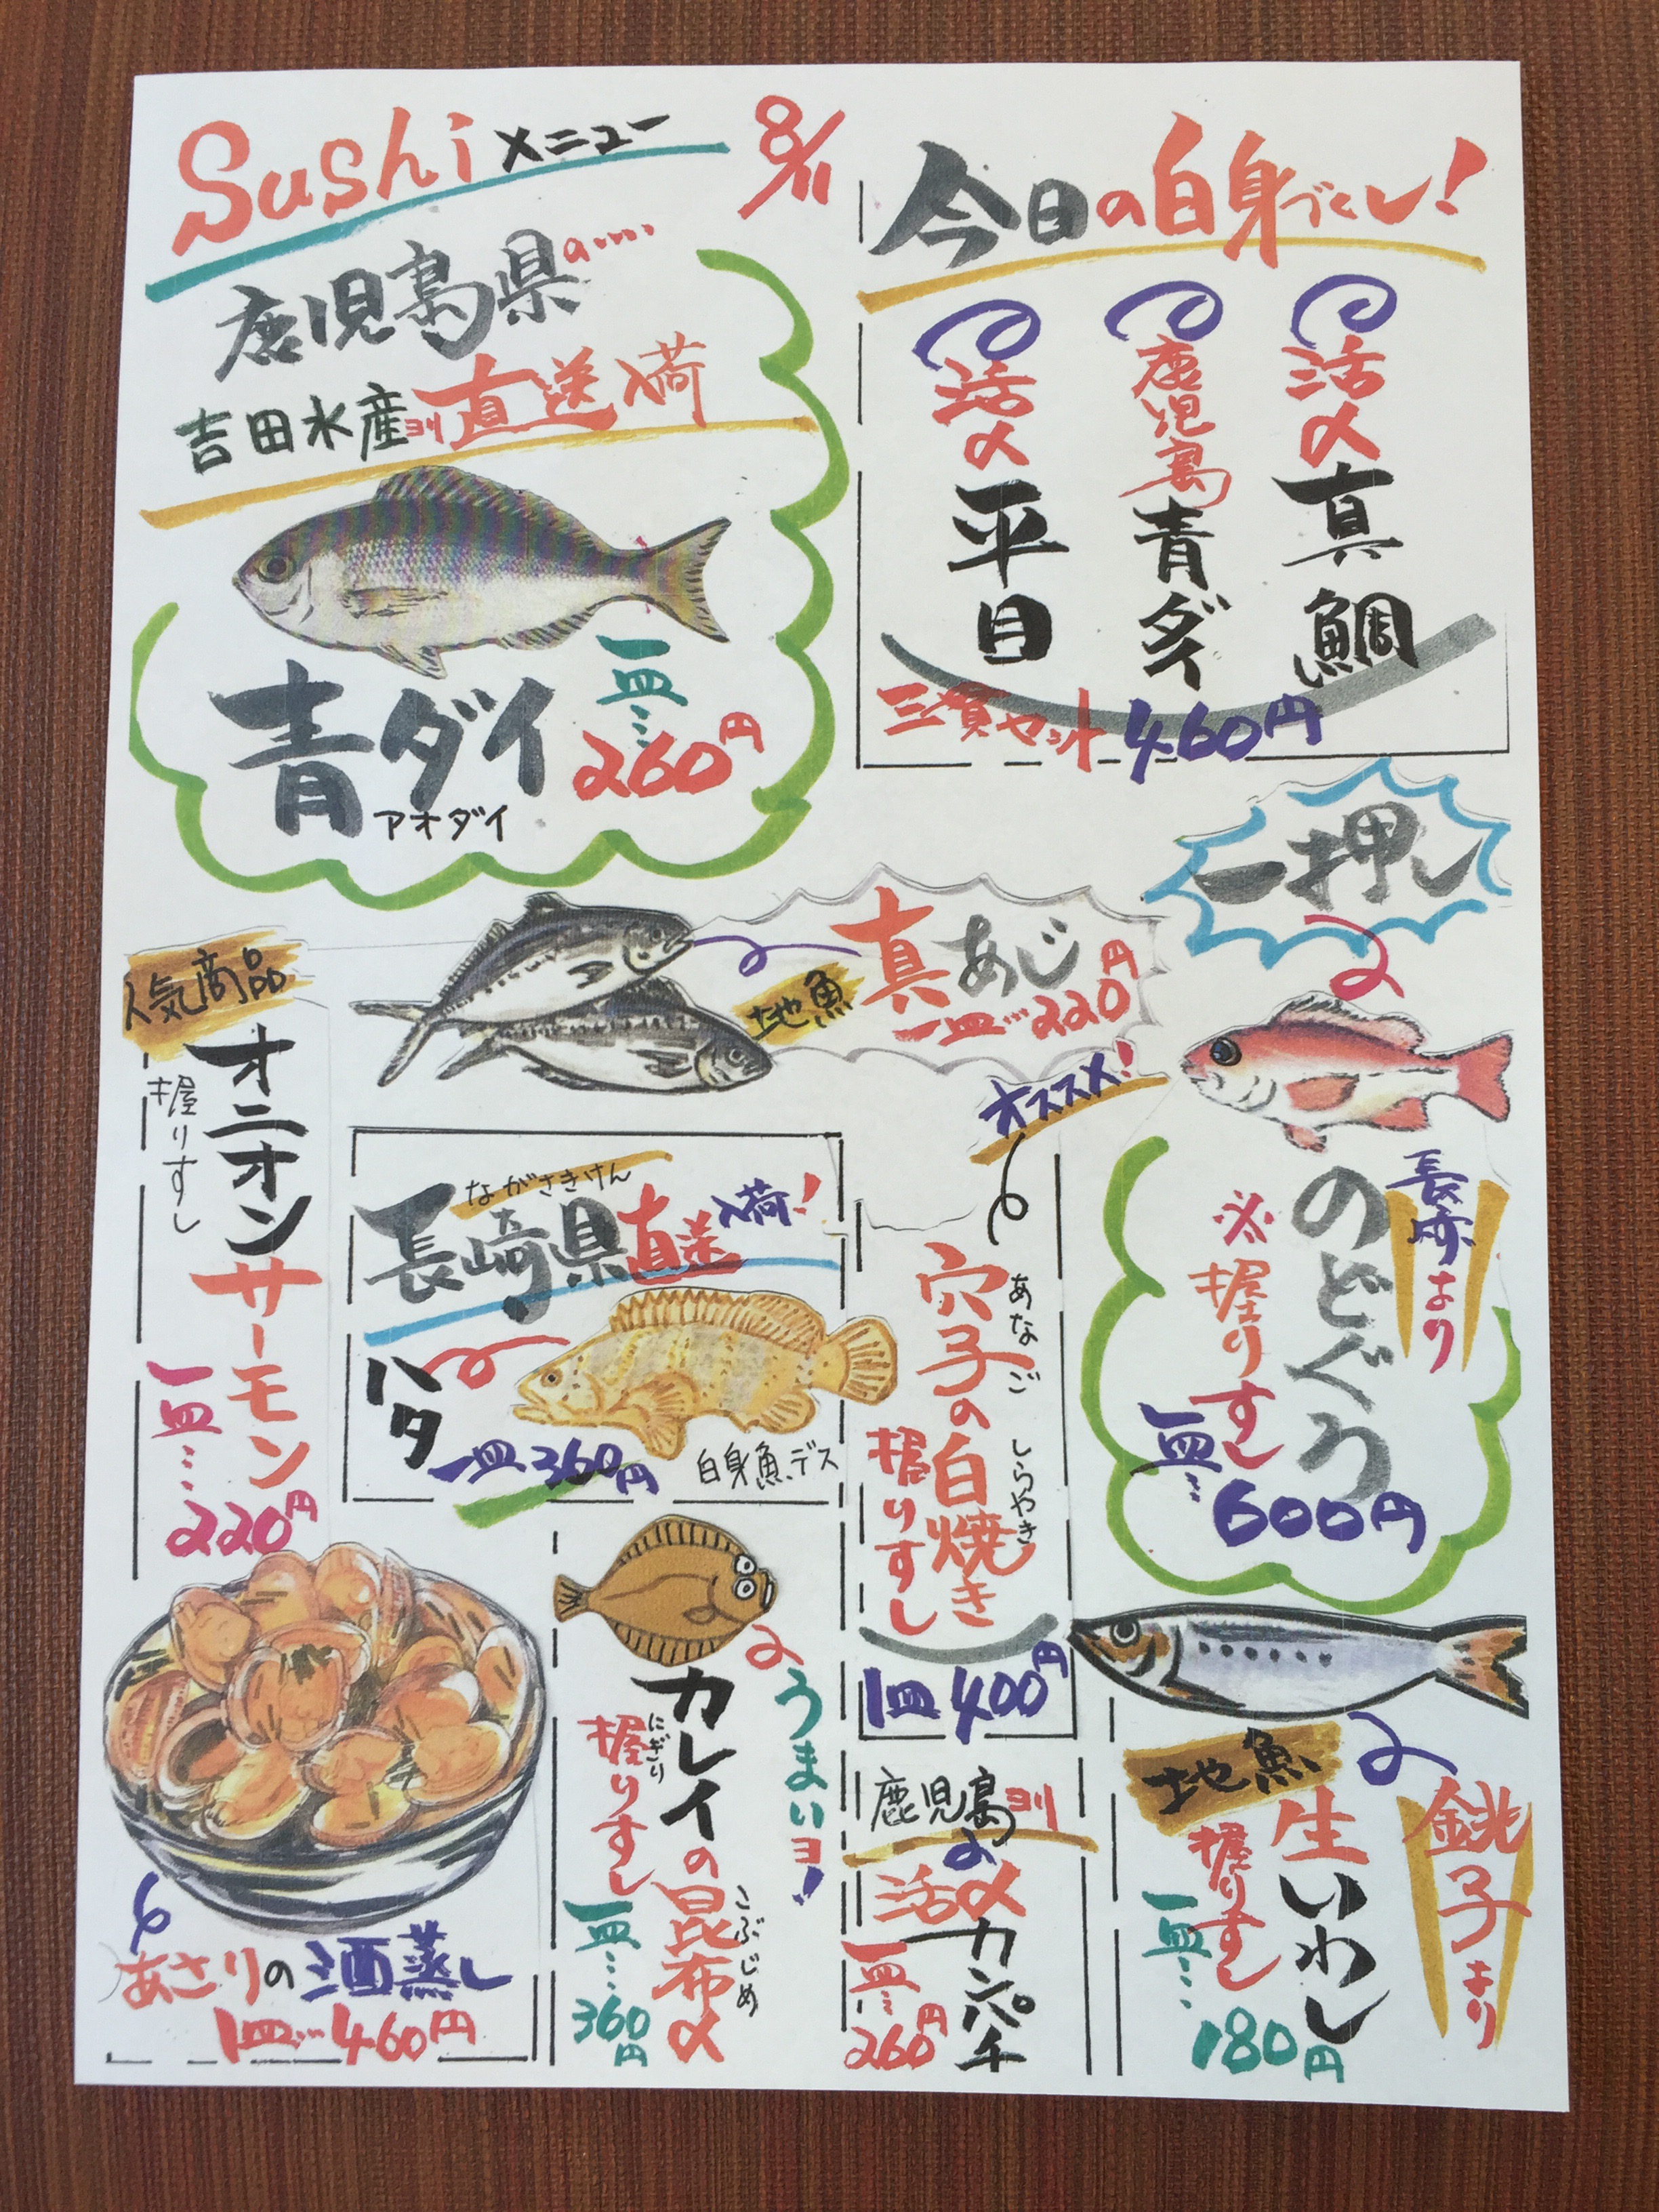 Sushi メニュー
8/11
鹿児島県の‥‥
吉田水産ヨリ直送入荷
一皿…
260円
青ダイ
アオダイ
今日の白身づくし!
活〆真鯛
鹿児島青ダイ
活〆平目
三貫セット460円
一押し
真あじ
地魚
一皿…220円
人気商品
オニオンサーモン
握りすし
一皿…
220円
ながさきけん
長崎県直送入荷!
ハタ
一皿360円
白身魚デス
オススメ!
穴子の白焼き
あなご
しらやき
握りすし
1皿400円
長崎より
のどぐろ
※握りすし
一皿…
600円
あさりの酒蒸し
1皿…460円
うまいヨ!
カレイの昆布〆
こぶじめ
にぎり
握りすし
一皿…
360円
鹿児島ヨリ
活〆カンパチ
一皿…
260円
地魚
銚子より
生いわし
握りすし
一皿…
180円